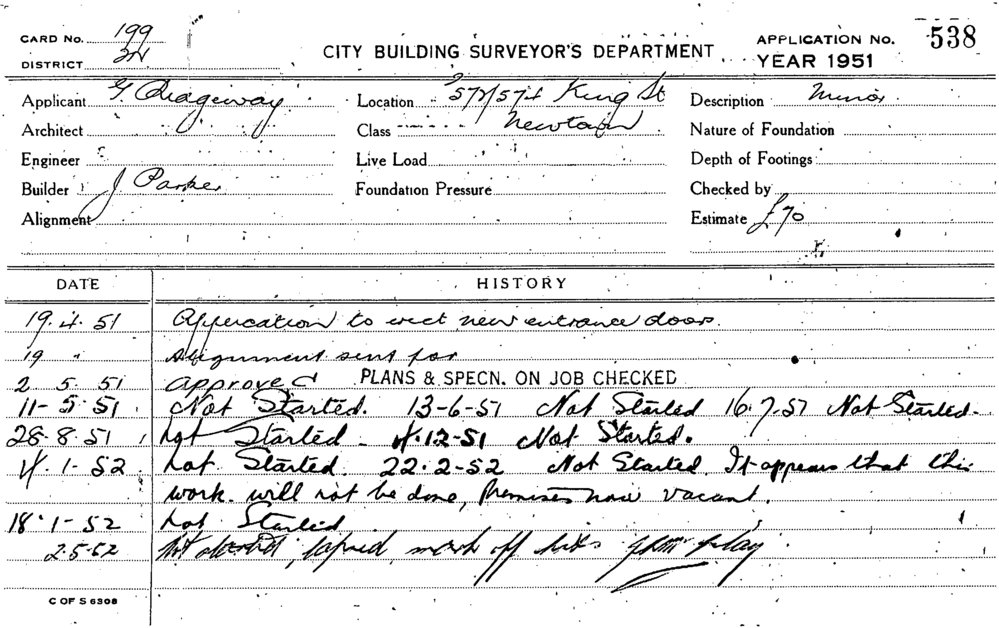 CARD No. 199
DISTRICT 3N
CITY BUILDING SURVEYOR'S DEPARTMENT
APPLICATION No. 538
YEAR 1951
Applicant G. Ridgeway Location 572/574 King St Description Minor
Architect Class Newtown Nature of Foundation
Engineer Live Load Depth of Footings
Builder J Parker Foundation Pressure Checked by
Alignment Estimate £70
DATE HISTORY
19.4.51 Application to erect new entrance door.
19 " Alignment sent for
2 5. 51 Approved PLANS & SPECN. ON JOB CHECKED
11-5-51 Not Started. 13-6-51 Not Started 16.7.51 Not Started-
28-8.51 Not Started - 4.12-51 Not Started.
4.1-52 Not Started. 22.2-52 Not Started. It appears that this
work will not be done, Premises now vacant.
18.1-52 Not Started
2.5.52 Not started, lapsed, mark off
C OF S 6308